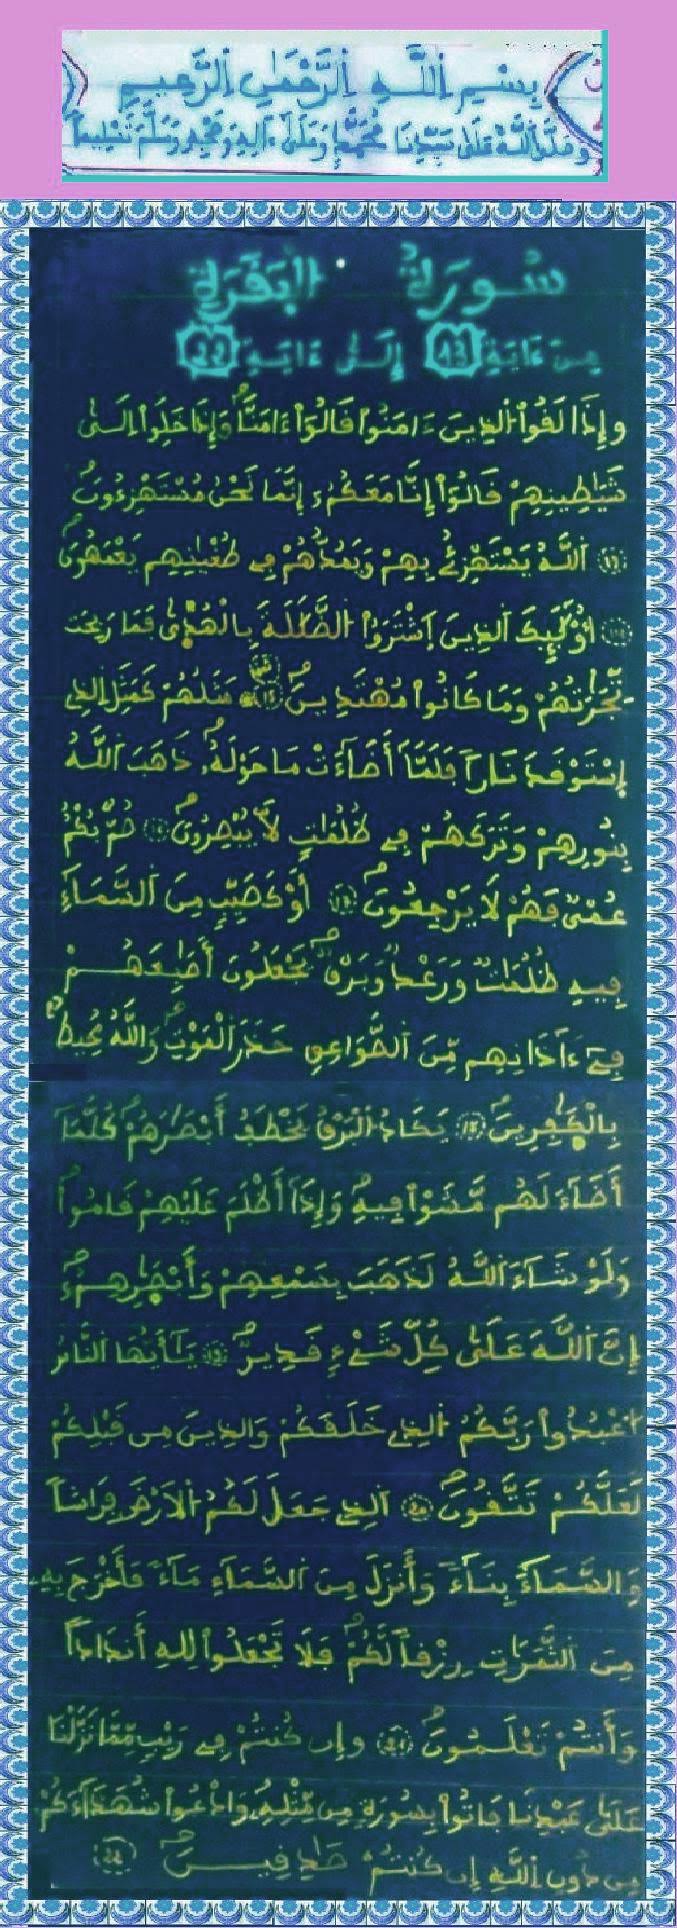 بِسْمِ اِللَّهِ اِلرَّحْمَٰنِ اِلرَّحِيمِ
وَصَلَّى اللَّهُ عَلَىٰ سَيِّدِنَا مُحَمَّدٍ وَعَلَىٰ ءَالِهِ وَصَحْبِهِ وَسَلَّمَ تَسْلِيماً
سُورَةُ اَلْبَقَرَةِ
مِنَ ءَايَةِ 13 إِلَىٰ ءَايَةِ 22
وَإِذَا لَقُواْ اُلذِينَ ءَامَنُواْ قَالُوٓاْ ءَامَنَّا وَإِذَا خَلَوِاْ اِلَىٰ
شَيَٰطِينِهِمْ قَالُوٓاْ إِنَّا مَعَكُمُۥٓ إِنَّمَا نَحْنُ مُسْتَهْزِءُونَ
13 اَللَّهُ يَسْتَهْزِئُ بِهِمْ وَيَمُدُّهُمْ فِي طُغْيَٰنِهِمْ يَعْمَهُونَ
14 أُوْلَٰٓئِكَ اَلذِينَ اَشْتَرَوُاْ اُلضَّلَٰلَةَ بِالْهُدَىٰ فَمَا رَبِحَت
تِّجَٰرَتُهُمْ وَمَا كَانُواْ مُهْتَدِينَ 15 مَثَلُهُمْ كَمَثَلِ اِلذِي
اِسْتَوْقَدَ نَاراً فَلَمَّآ أَضَآءَتْ مَا حَوْلَهُۥ ذَهَبَ اَللَّهُ
بِنُورِهِمْ وَتَرَكَهُمْ فِي ظُلُمَٰتٍ لَّا يُبْصِرُونَ 16 صُمٌّ بُكْمٌ
عُمْيٌ فَهُمْ لَا يَرْجِعُونَ 17 أَوْ كَصَيِّبٍ مِّنَ اَلسَّمَآءِ
فِيهِ ظُلُمَٰتٌ وَرَعْدٌ وَبَرْقٌ يَجْعَلُونَ أَصَٰبِعَهُمْ
فِيٓ ءَاذَانِهِم مِّنَ اَلصَّوَٰعِقِ حَذَرَ اَلْمَوْتِ وَاللَّهُ مُحِيطٌ
بِالْكَٰفِرِينَ 18 يَكَادُ اُلْبَرْقُ يَخْطَفُ أَبْصَٰرَهُمْ كُلَّمَآ
أَضَآءَ لَهُم مَّشَوْاْ فِيهِ وَإِذَآ أَظْلَمَ عَلَيْهِمْ قَامُواْ
وَلَوْ شَآءَ اَللَّهُ لَذَهَبَ بِسَمْعِهِمْ وَأَبْصَٰرِهِمُۥٓ
إِنَّ اَللَّهَ عَلَىٰ كُلِّ شَےْءٍ قَدِيرٌ 19 يَٰٓأَيُّهَا اَلنَّاسُ
اُعْبُدُواْ رَبَّكُمُ اُلذِي خَلَقَكُمْ وَالذِينَ مِن قَبْلِكُمْ
لَعَلَّكُمْ تَتَّقُونَ 20 اَلذِي جَعَلَ لَكُمُ اُلَارْضَ فِرَٰشاً
وَالسَّمَآءَ بِنَآءً وَأَنزَلَ مِنَ اَلسَّمَآءِ مَآءً فَأَخْرَجَ بِهِۦ
مِنَ اَلثَّمَرَٰتِ رِزْقاً لَّكُمْ فَلَا تَجْعَلُواْ لِلهِ أَندَاداً
وَأَنتُمْ تَعْلَمُونَ 21 وَإِن كُنتُمْ فِي رَيْبٍ مِّمَّا نَزَّلْنَا
عَلَىٰ عَبْدِنَا فَاتُواْ بِسُورَةٍ مِّن مِّثْلِهِۦ وَادْعُواْ شُهَدَآءَكُم
مِّن دُونِ اِللَّهِ إِن كُنتُمْ صَٰدِقِينَ 22